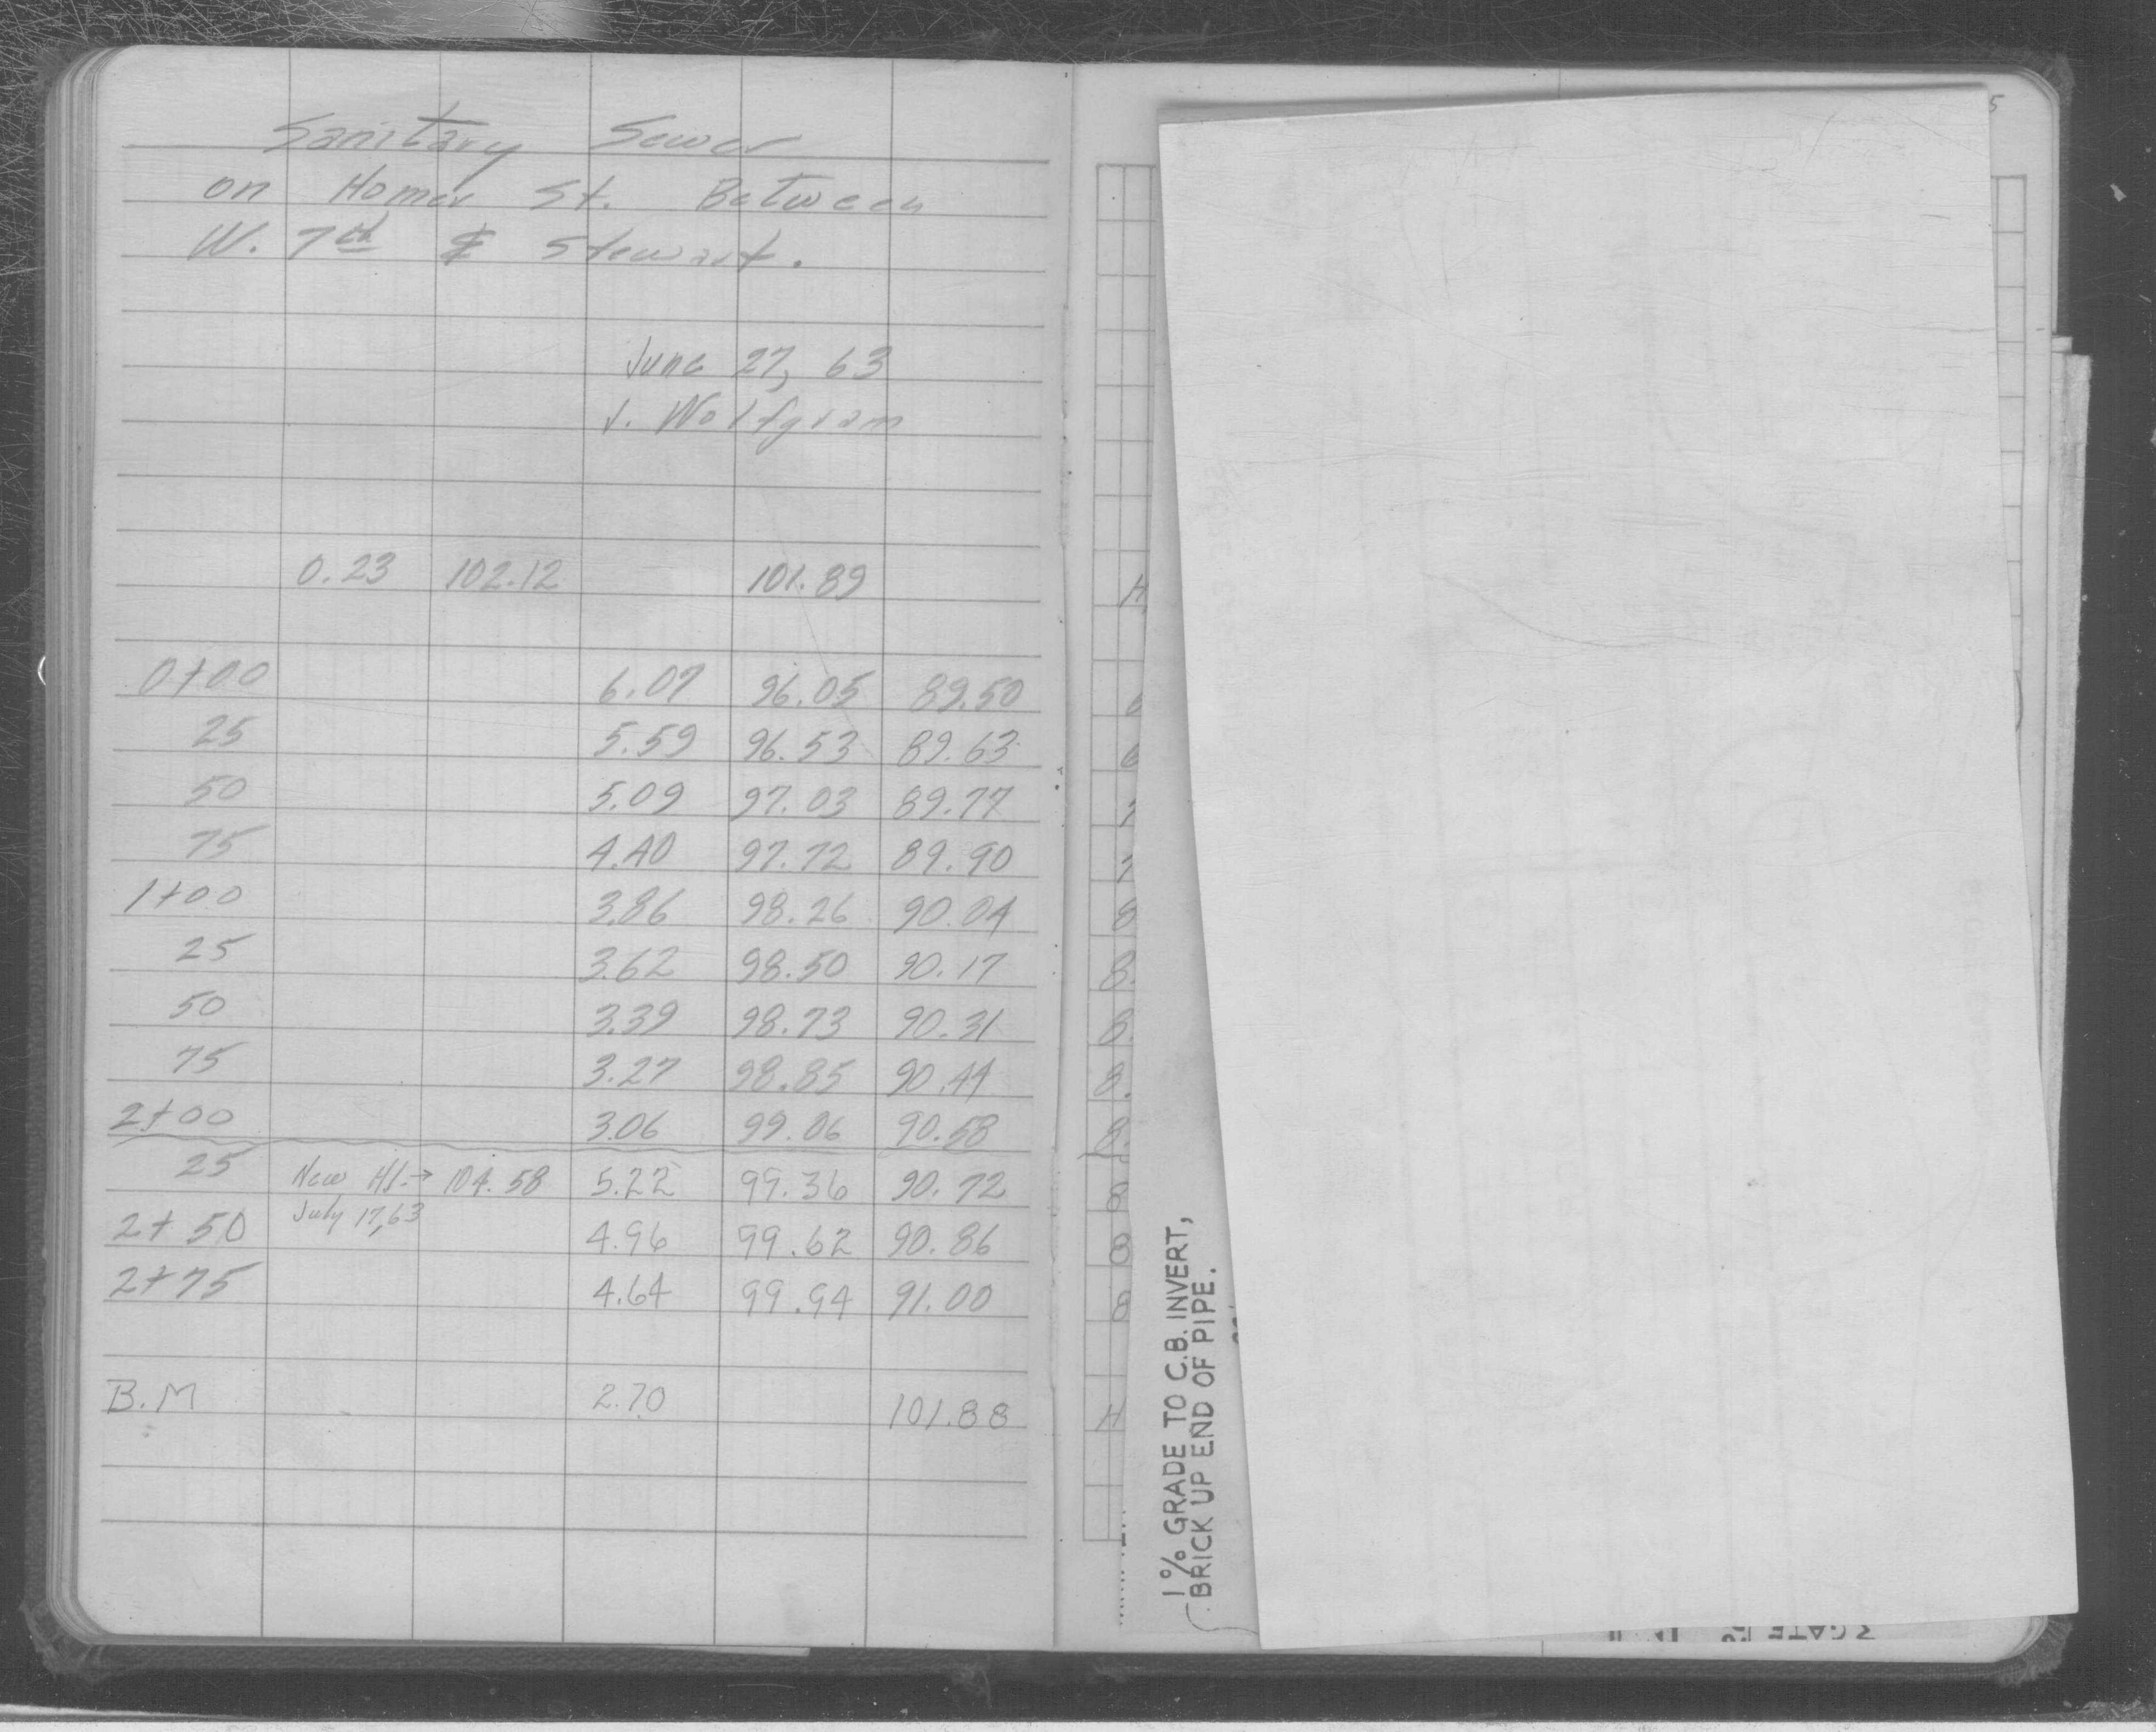 Sanitary Sewer
on Homer St. Between
W. 7th & Stewart.
June 27, 63
J. Wolfgram
0.23 102.12 101.89
0+00 6.07 96.05 89.50
25 5.59 96.53 89.63
50 5.09 97.03 89.77
75 4.40 97.72 89.90
1+00 3.86 98.26 90.04
25 3.62 98.50 90.17
50 3.39 98.73 90.31
75 3.27 98.85 90.44
2+00 3.06 99.06 90.58
25 New H.I.→ 104.58 5.22 99.36 90.72
July 17, 63
2+50 4.96 99.62 90.86
2+75 4.64 99.94 91.00
B.M 2.70 101.88
5
H
6
6
7
7
8
8.
8.
8.
8.
8
8
8
H
1% GRADE TO C.B. INVERT,
BRICK UP END OF PIPE.